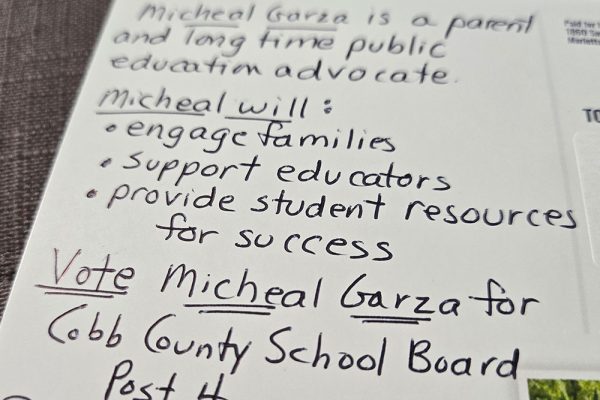 Micheal Garza is a parent
and long time public
education advocate.
Micheal will:
• engage families
• support educators
• provide student resources
for success
Vote Micheal Garza for
Cobb County School Board
Post 4
Paid for
TO